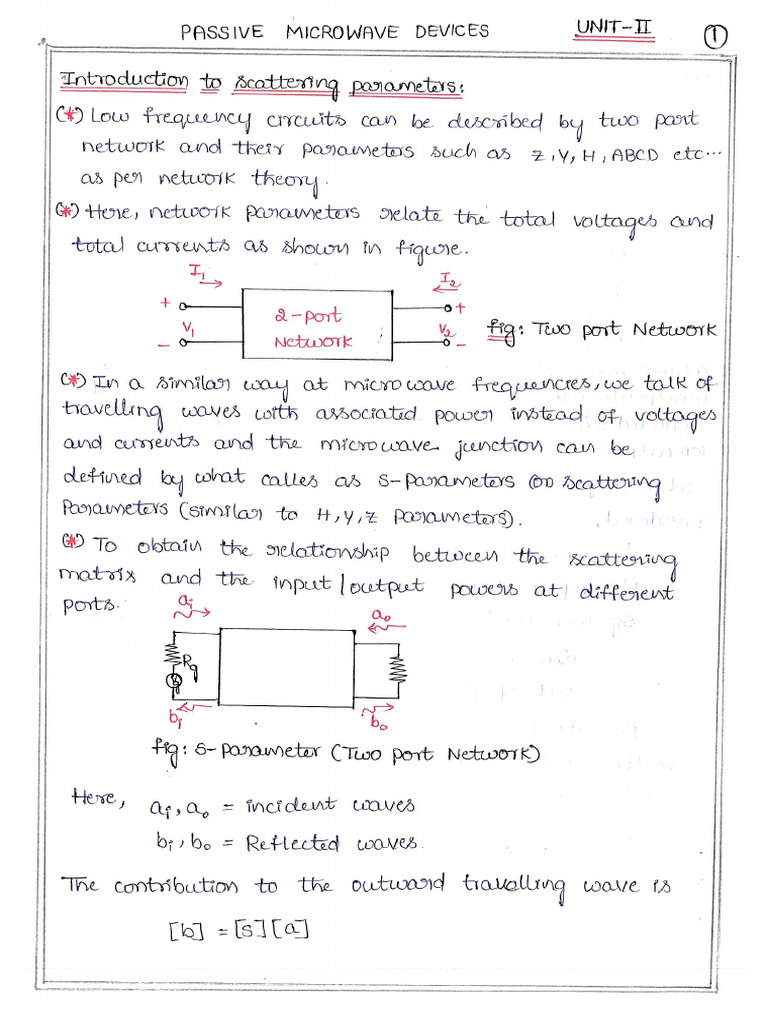 PASSIVE MICROWAVE DEVICES UNIT-II 1
Introduction to scattering parameters:
(*) Low frequency circuits can be described by two port
network and their parameters such as Z,Y,H,ABCD etc...
as per network theory.
(*) Here, network parameters relate the total voltages and
total currents as shown in figure.
I₁ I₂
+ +
V₁ 2-port V₂ fig: Two port Network
- Network -
(*) In a similar way at microwave frequencies, we talk of
travelling waves with associated power instead of voltages
and currents and the microwave junction can be
defined by what calles as S-parameters (or) scattering
Parameters (similar to H,Y,Z parameters).
(*) To obtain the relationship between the scattering
matrix and the input/output powers at different
ports.
aᵢ aₒ
Rg
bᵢ bₒ
fig: S-parameter (Two port Network)
Here, aᵢ, aₒ = incident waves
bᵢ, bₒ = Reflected waves.
The contribution to the outward travelling wave is
[b] = [S][a]